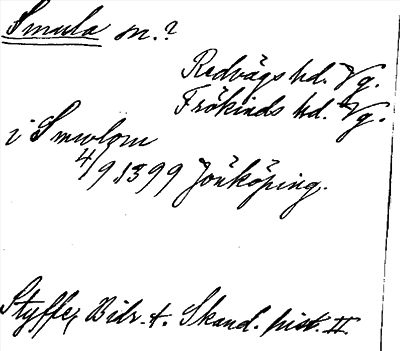 Smula sn.?
Redvägs hd. Vg.
Frökinds hd. Vg.
i Smwlom
4/9 1399 Jönköping.
Styffe, Bidr. t. Skand. hist. II